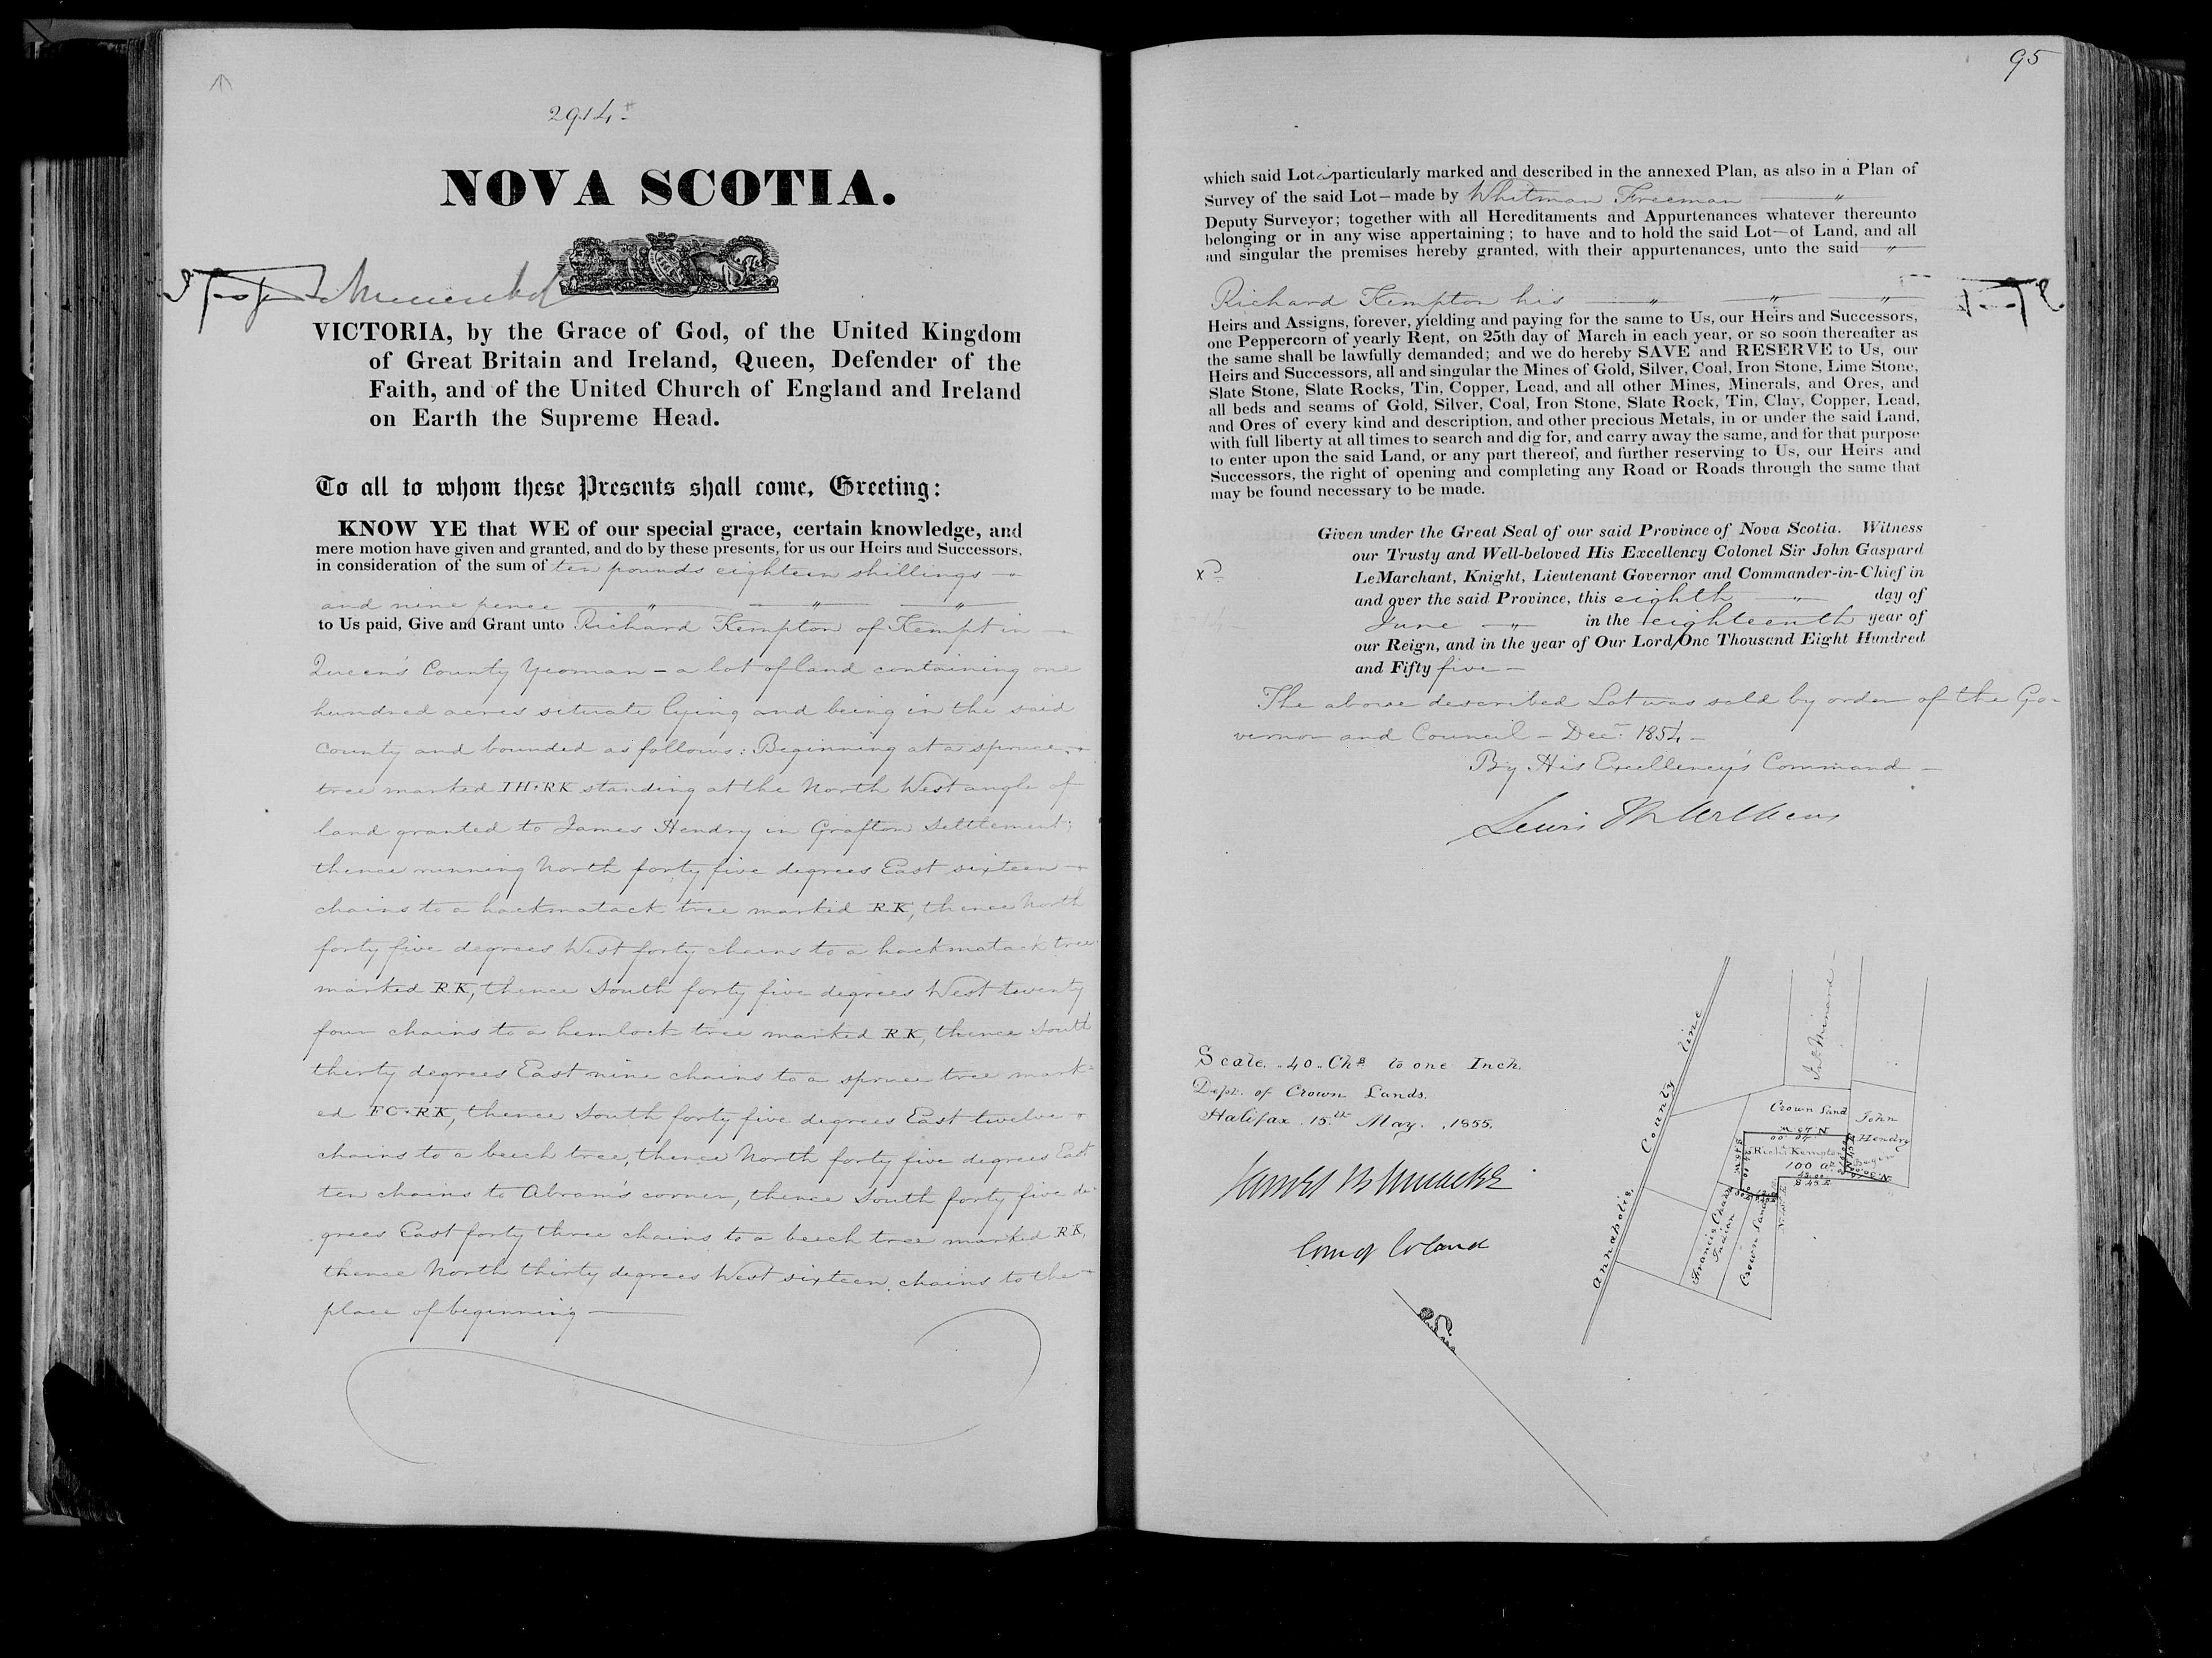 2914
NOVA SCOTIA.
VICTORIA, by the Grace of God, of the United Kingdom
of Great Britain and Ireland, Queen, Defender of the
Faith, and of the United Church of England and Ireland
on Earth the Supreme Head.
To all to whom these Presents shall come, Greeting:
KNOW YE that WE of our special grace, certain knowledge, and
mere motion have given and granted, and do by these presents, for us our Heirs and Successors,
in consideration of the sum of ten pounds eighteen shillings
and nine pence
to Us paid, Give and Grant unto Richard Kempton of Kempt in
Queen's County Yeoman - a lot of land containing one
hundred acres situate lying and being in the said
County and bounded as follows: Beginning at a spruce
tree marked IH.RK standing at the North West angle of
land granted to James Hendry in Grafton Settlement;
thence running North forty five degrees East sixteen
chains to a hackmatack tree marked RK, thence North
forty five degrees West forty chains to a hackmatack tree
marked RK, thence South forty five degrees West twenty
four chains to a hemlock tree marked RK, thence South
thirty degrees East nine chains to a spruce tree mark-
ed FC.RK, thence South forty five degrees East twelve
chains to a beech tree, thence North forty five degrees East
ten chains to Abram's corner, thence South forty five de-
grees East forty three chains to a beech tree marked RK,
thence North thirty degrees West sixteen chains to the
place of beginning
95
which said Lot is particularly marked and described in the annexed Plan, as also in a Plan of
Survey of the said Lot - made by Whitman Freeman "
Deputy Surveyor; together with all Hereditaments and Appurtenances whatever thereunto
belonging or in any wise appertaining; to have and to hold the said Lot - of Land, and all
and singular the premises hereby granted, with their appurtenances, unto the said "
Richard Kempton his " " "
Heirs and Assigns, forever, yielding and paying for the same to Us, our Heirs and Successors,
one Peppercorn of yearly Rent, on 25th day of March in each year, or so soon thereafter as
the same shall be lawfully demanded; and we do hereby SAVE and RESERVE to Us, our
Heirs and Successors, all and singular the Mines of Gold, Silver, Coal, Iron Stone, Lime Stone,
Slate Stone, Slate Rocks, Tin, Copper, Lead, and all other Mines, Minerals, and Ores, and
all beds and seams of Gold, Silver, Coal, Iron Stone, Slate Rock, Tin, Clay, Copper, Lead,
and Ores of every kind and description, and other precious Metals, in or under the said Land,
with full liberty at all times to search and dig for, and carry away the same, and for that purpose
to enter upon the said Land, or any part thereof, and further reserving to Us, our Heirs and
Successors, the right of opening and completing any Road or Roads through the same that
may be found necessary to be made.
Given under the Great Seal of our said Province of Nova Scotia. Witness
our Trusty and Well-beloved His Excellency Colonel Sir John Gaspard
LeMarchant, Knight, Lieutenant Governor and Commander-in-Chief in
and over the said Province, this eighth " day of
June " in the eighteenth year of
our Reign, and in the year of Our Lord One Thousand Eight Hundred
and Fifty five
The above described Lot was sold by order of the Go-
vernor and Council - Decr 1854 -
By His Excellency's Command -
Lewis
Scale. 40. Chs to one Inch.
Dept. of Crown Lands.
Halifax. 15th May. 1855.
James B
Com of
Annapolis County line
Jno Minard
Crown Land
John
Hendry
Richd Kempton
100 a
Francis Charles
Indian
Crown Land